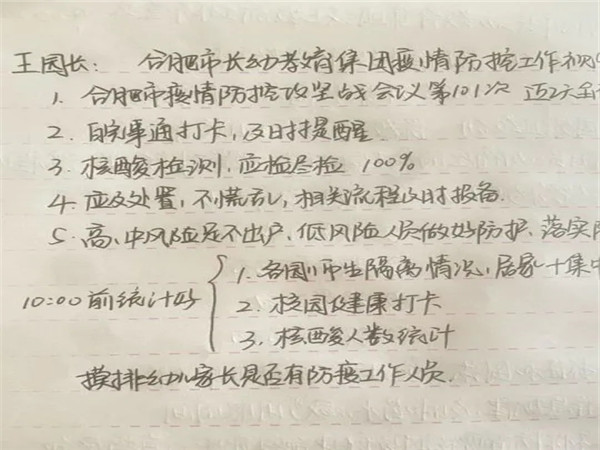 王园长：合肥市长幼教育集团疫情防控工作视
1. 合肥市疫情防控攻坚战会议第101次 近2天
2. 皖事通打卡，及时提醒.
3. 核酸检测，应检尽检 100%
4. 应急处置，不慌乱，相关流程及时报备.
5. 高、中风险足不出户，低风险人员做好防护、落实
10:00前统计好
1. 各园师生隔离情况，居家+集中
2. 校园健康打卡
3. 核酸人数统计
摸排幼儿家长是否有防疫工作人员.